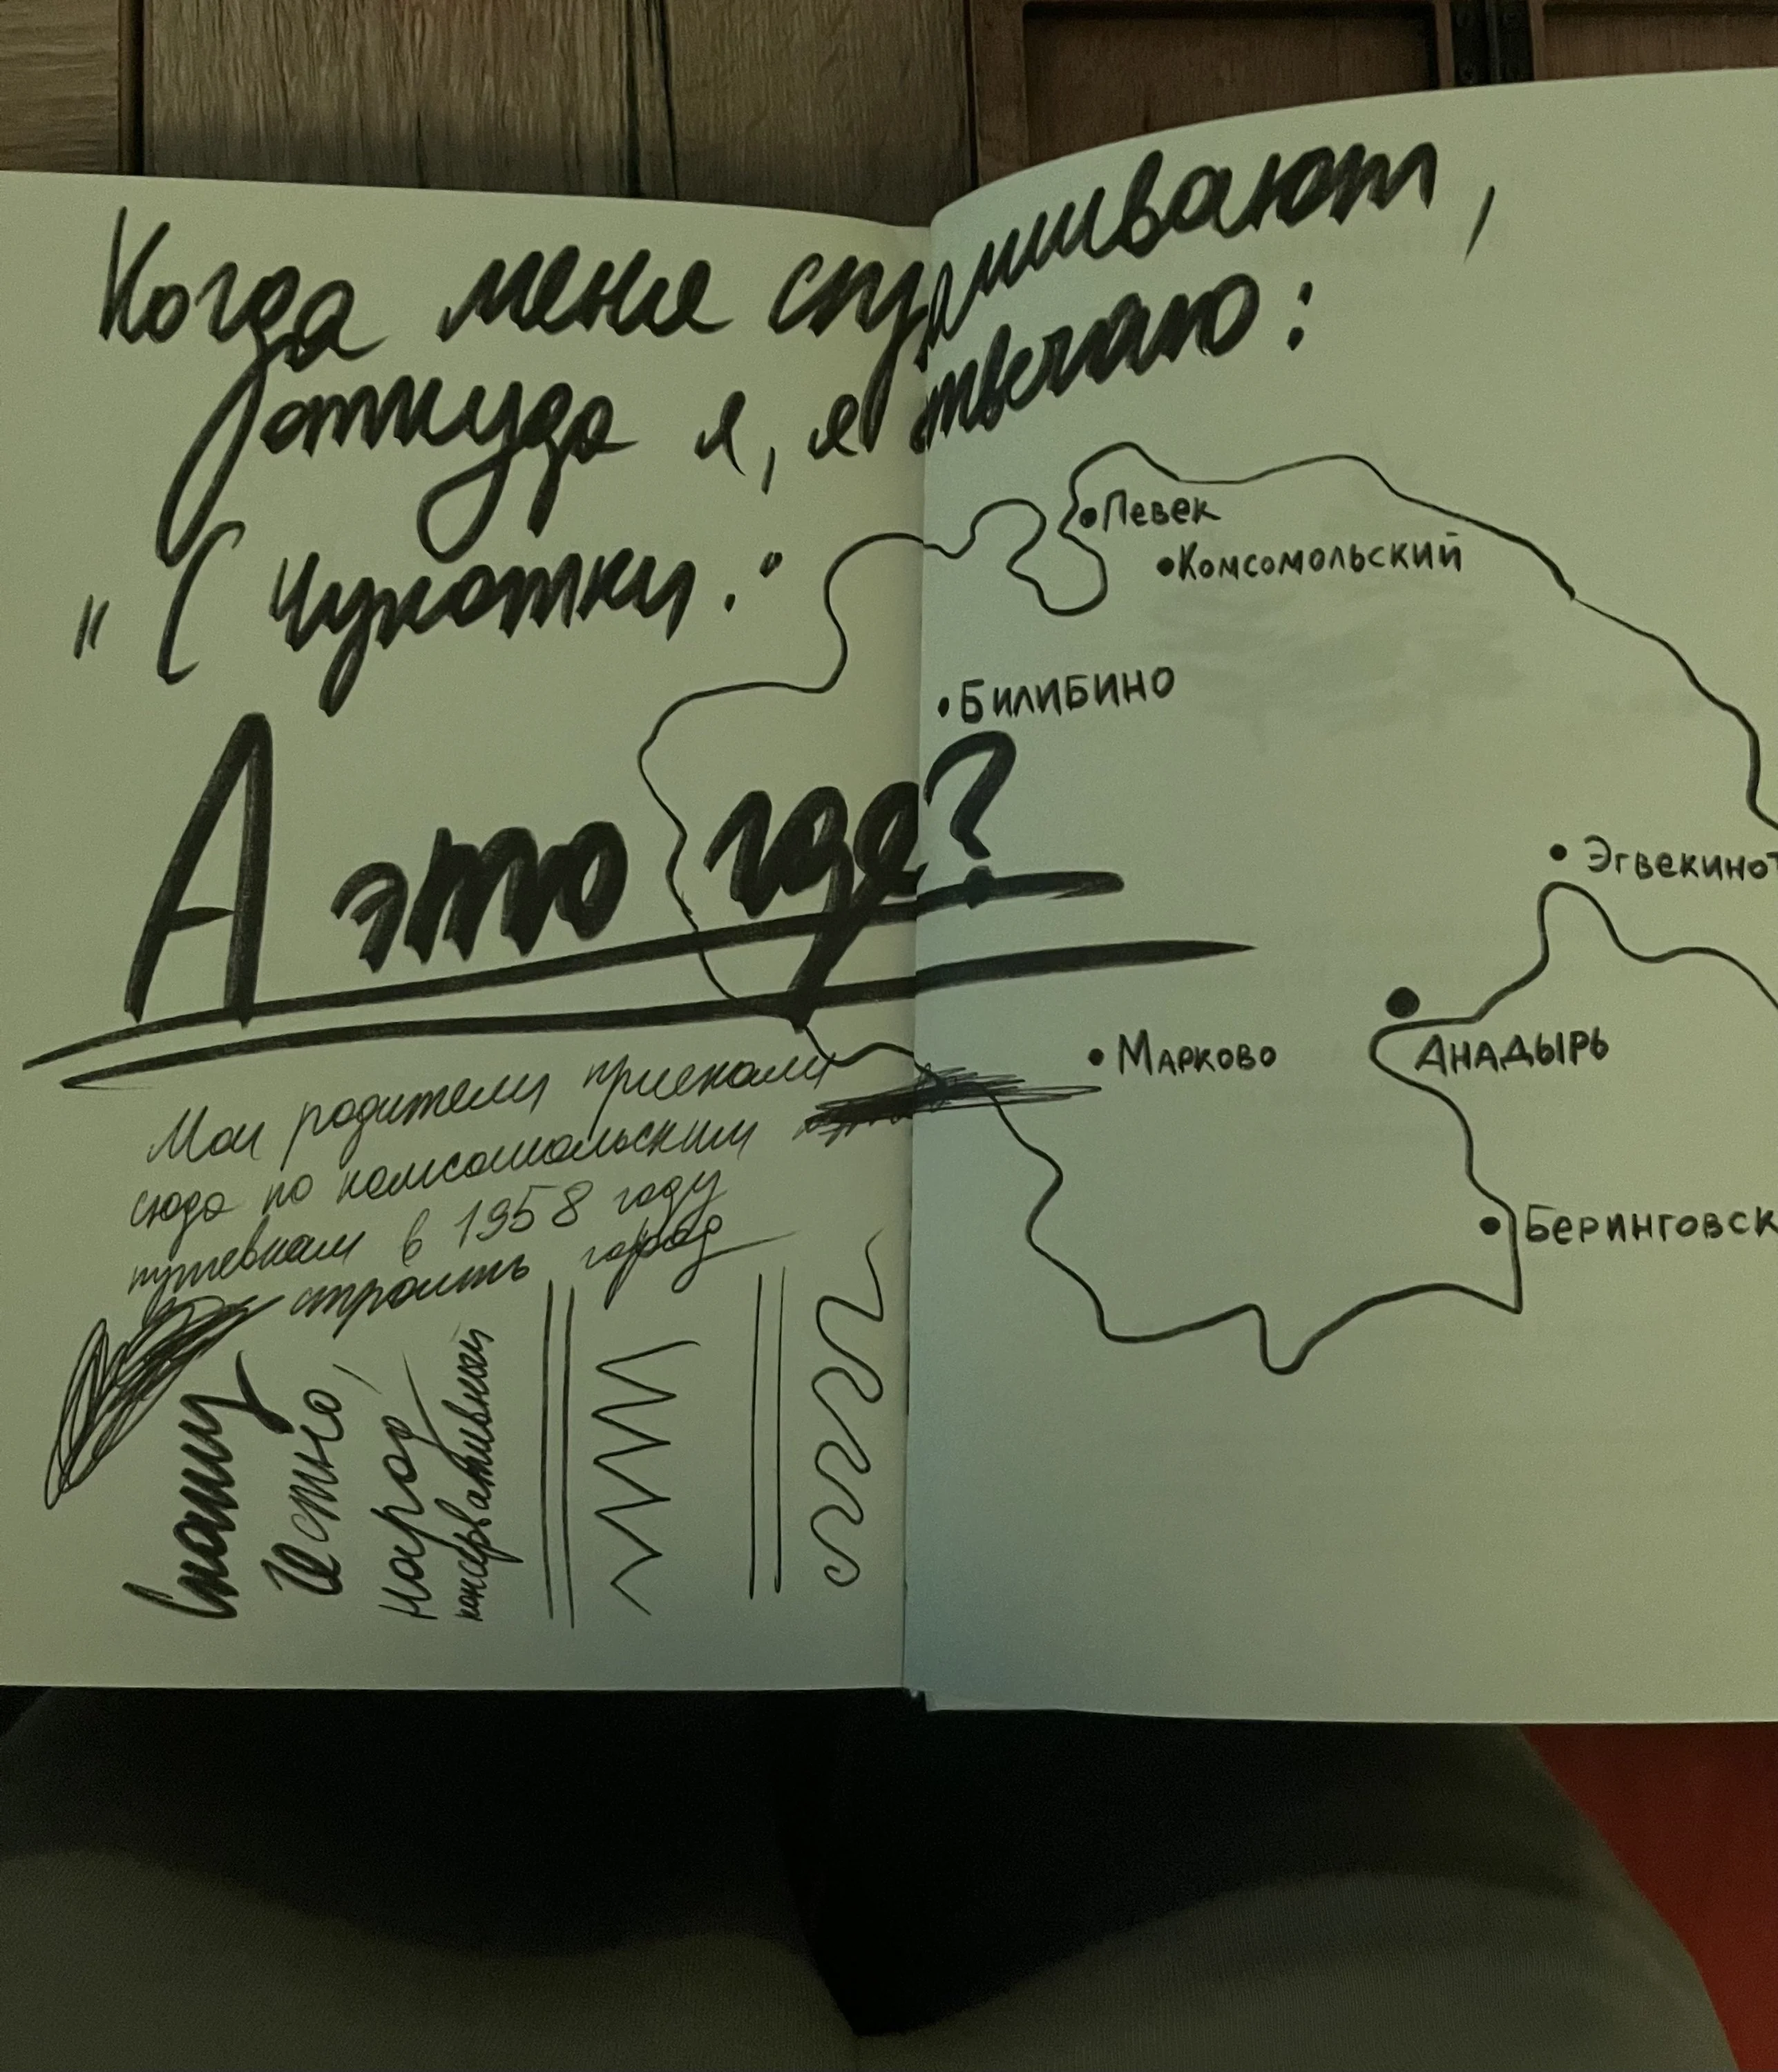 Когда меня спрашивают,
откуда я, я отвечаю:
"С Чукотки."
А это где?
Мои родители приехали
сюда по комсомольским
путевкам в 1958 году
строить город
Скажу
честно,
народ
консервативный
Певек
Комсомольский
Билибино
Эгвекинот
Марково
Анадырь
Беринговск